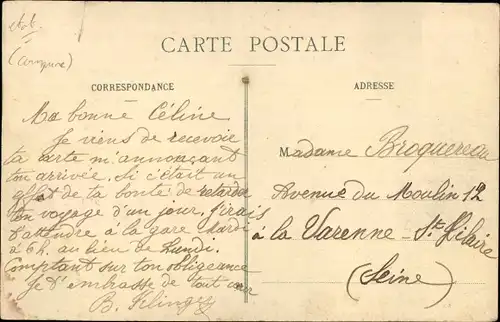 CARTE POSTALE
CORRESPONDANCE
Ma bonne Céline
Je viens de recevoir
ta carte m'annonçant
ton arrivée. Si c'était un
effet de ta bonté de retarder
ton voyage d'un jour, j'irais
t'attendre à la gare Mardi
à 6h. au lieu de Lundi.
Comptant sur ton obligeance
Je t'embrasse de tout cœur
B.
ADRESSE
Madame Broquereau
Avenue du Moulin 12
à la Varenne - St Hilaire
(Seine)